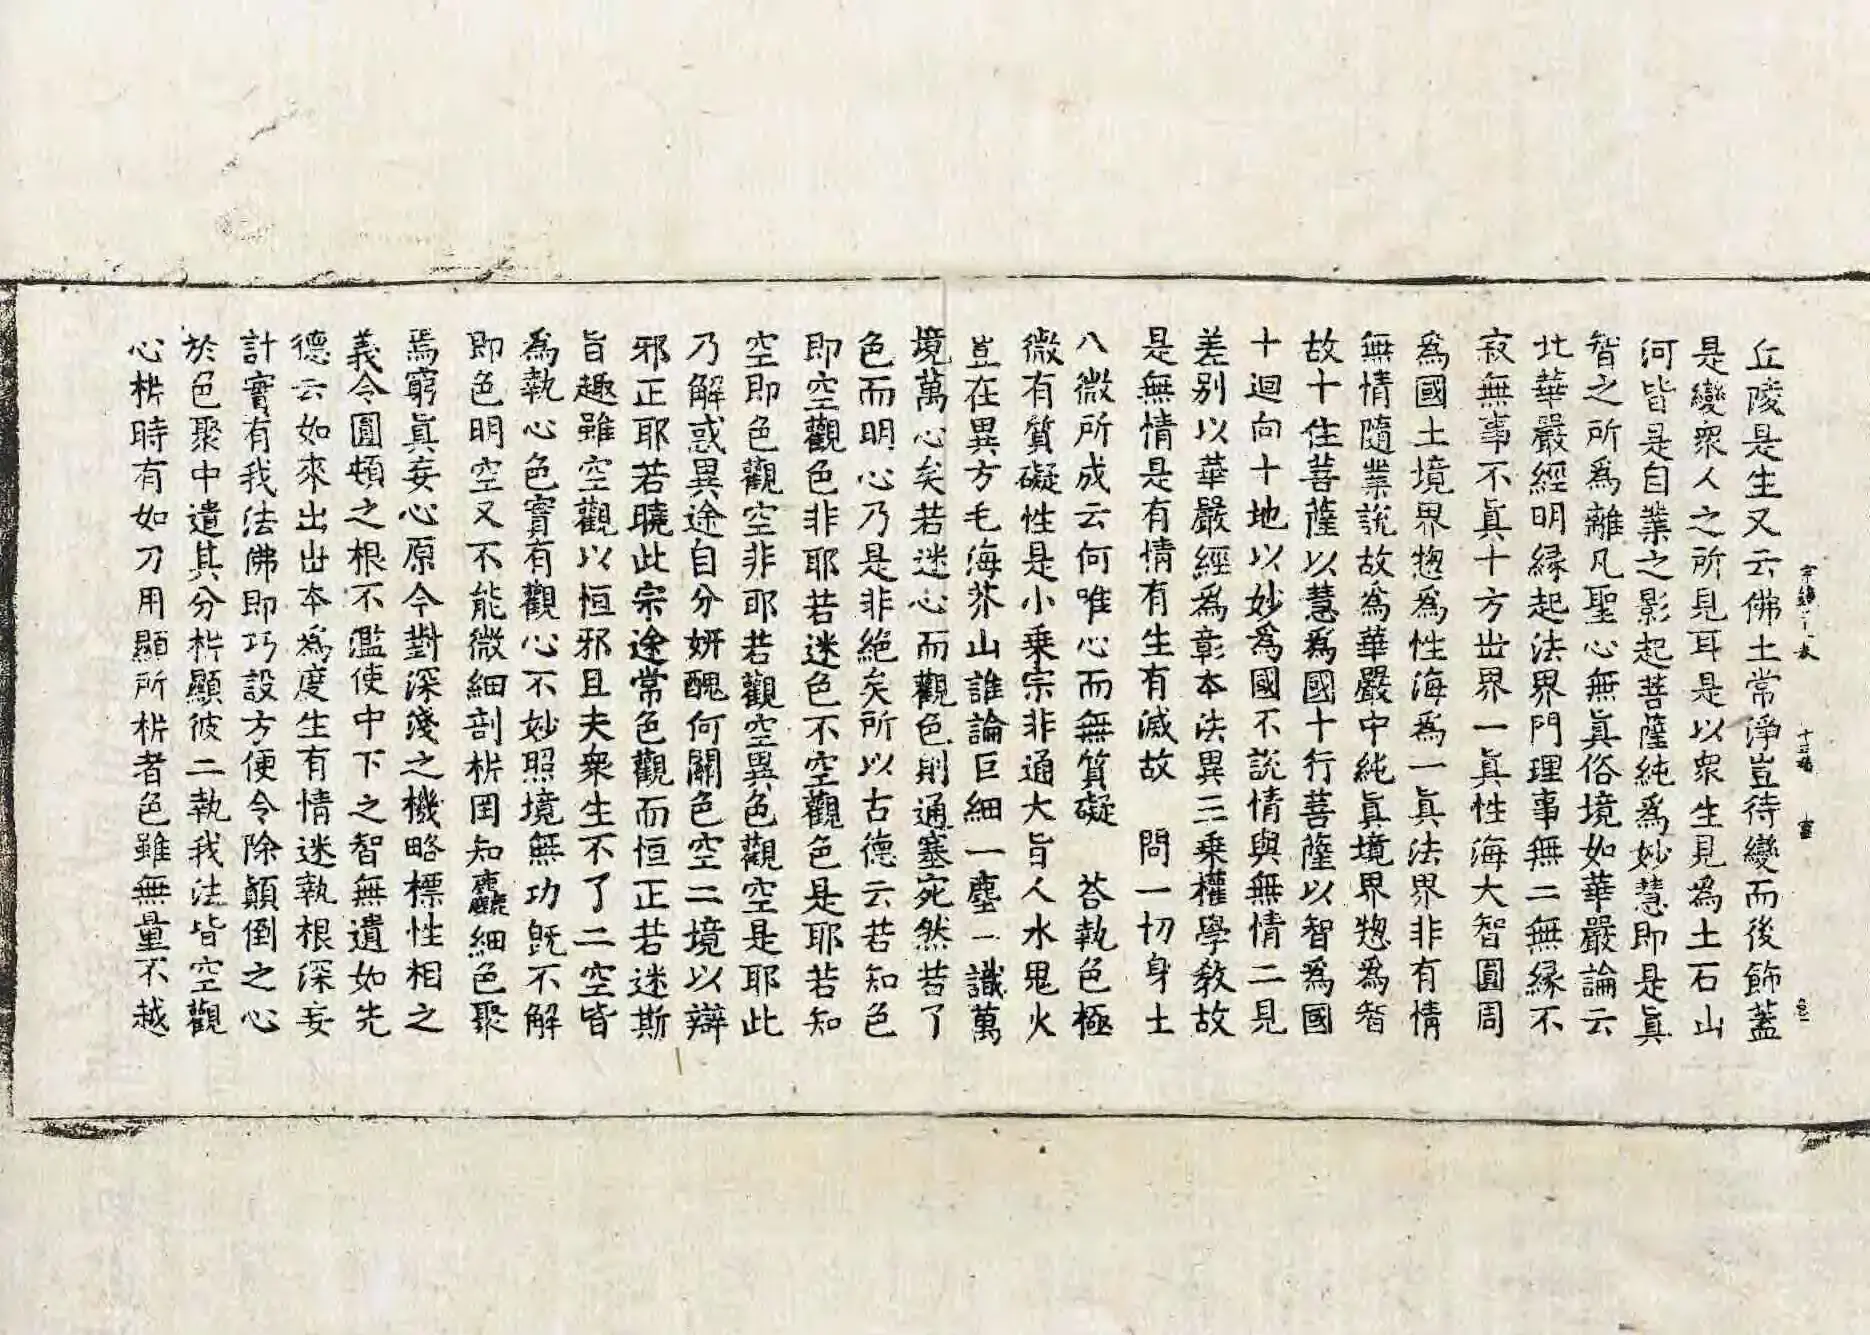 丘陵是生又云佛土常淨豈待變而後飾蓋
是變衆人之所見耳是以衆生見為土石山
河皆是自業之影起菩薩純爲妙慧即是眞
智之所爲離凡聖心無眞俗境如華嚴論云
此華嚴經明縁起法界門理事無二無縁不
寂無事不眞十方世界一眞性海大智圓周
爲國土境界惣爲性海爲一眞法界非有情
無情隨業說故爲華嚴中純眞境界惣爲智
故十住菩薩以慧爲國十行菩薩以智爲國
十迴向十地以妙爲國不說情與無情二見
差别以華嚴經爲彰本法異三乗權學敎故
是無情是有情有生有滅故　問一切身土
八微所成云何唯心而無質礙　荅執色極
微有質礙性是小乗宗非通大旨人水鬼火
豈在異方毛海芥山誰論巨細一塵一識萬
境萬心矣若迷心而觀色則通塞宛然若了
色而明心乃是非絶矣所以古德云若知色
即空觀色非耶若迷色不空觀色是耶若知
空即色觀空非耶若觀空異色觀空是耶此
乃解惑異途自分妍醜何關色空二境以辯
邪正耶若曉此宗途常色觀而恒正若迷斯
旨趣雖空觀以恒邪且夫衆生不了二空皆
為執心色實有觀心不妙照境無功旣不解
即色明空又不能微細剖枿罔知麤細色聚
焉窮眞妄心原今對深淺之機略標性相之
義令圓頓之根不濫使中下之智無遺如先
德云如來出世本爲度生有情迷執根深妄
計實有我法佛即巧設方便令除顚倒之心
於色聚中遣其分枿顯彼二執我法皆空觀
心枿時有如刀用顯所枿者色雖無量不越